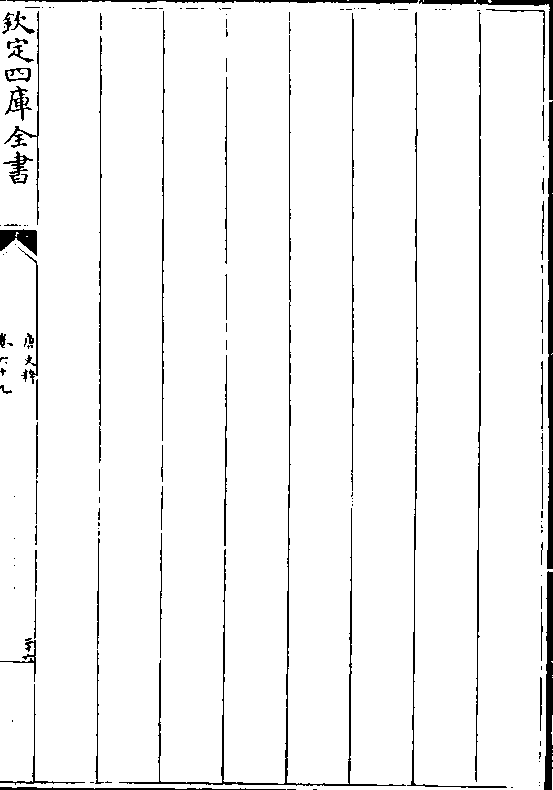 欽定四庫全書
唐文粹
卷六十九